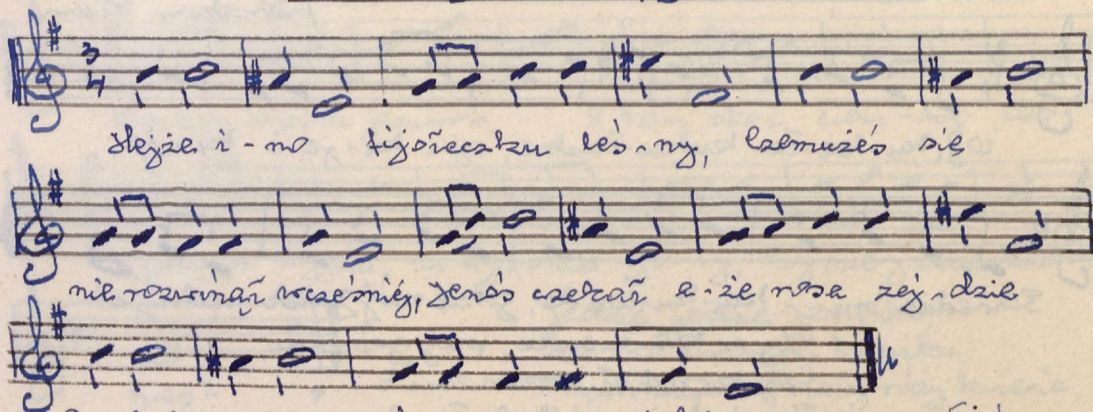 3
4
Hejże i-no fijołeczku leś-ny, czemużeś się
nie rozwinął wcześniej, jenoś czekał a-że rosa zej-dzie